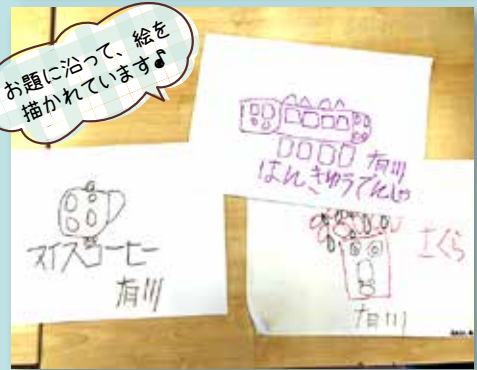 お題に沿って、絵を
描かれています♪
有川
はんきゅうでんしゃ
アイスコーヒー
有川
さくら
有川